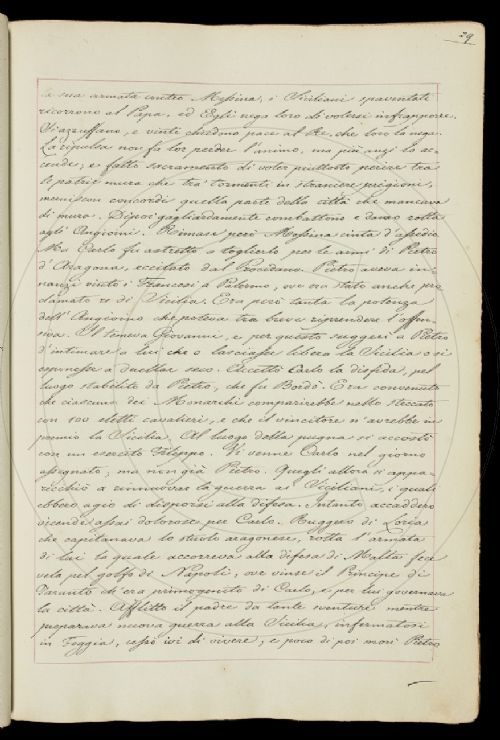 29
la sua armata contro Messina, i Siciliani spaventati
ricorrono al Papa, ed Egli nega loro di volersi infrapporre.
Si azzuffano, e vinti chiedono pace al Re, che loro la nega.
La ripulsa non fa lor perder l'animo, ma più anzi lo ac-
cende; e fatto sacramento di voler piuttosto perire tra
le patrie mura che tra' tormenti in straniere prigioni,
muniscon concordi quella parte della città che mancava
di mura. Dipoi gagliardamente combattono e danno rotta
agli Angioini. Rimase però Messina cinta d'assedio
Ma Carlo fu astretto a toglierlo per le armi di Pietro
d'Aragona, eccitato dal Procidano. Pietro aveva in-
nanzi vinto i Francesi a Palermo, ove era stato anche pro
clamato re di Sicilia. Era però tanta la potenza
dell'Angioino che poteva tra breve riprendere l'offen-
siva. Il temeva Giovanni, e per questo suggerì a Pietro
d'intimare a lui che o lasciasse libera la Sicilia o si
esponesse a duellar seco. Accettò Carlo la disfida, pel
luogo stabilito da Pietro, che fu Bordò. Era convenuto
che ciascuno dei Monarchi comparirebbe nello steccato
con 100 eletti cavalieri, e che il vincitore n'avrebbe in
premio la Sicilia. Al luogo della pugna si accostò
con un esercito Filippo. Vi venne Carlo nel giorno
assegnato, ma non già Pietro. Quegli allora si appa-
recchiò a rinnuovar la guerra ai Siciliani, i quali
ebbero agio di disporsi alla difesa. Intanto accaddero
vicende assai dolorose per Carlo. Ruggero di Loria
che capitanava lo stuolo aragonese, rotta l'armata
di lui la quale accorreva alla difesa di Malta fece
vela pel golfo di Napoli, ove vinse il Principe di
Taranto ch'era primogenito di Carlo, e per lui governava
la città. Afflitto il padre da tante sventure mentre
preparava nuova guerra alla Sicilia, infermatosi
in Foggia, cessò ivi di vivere, e poco di poi morì Pietro